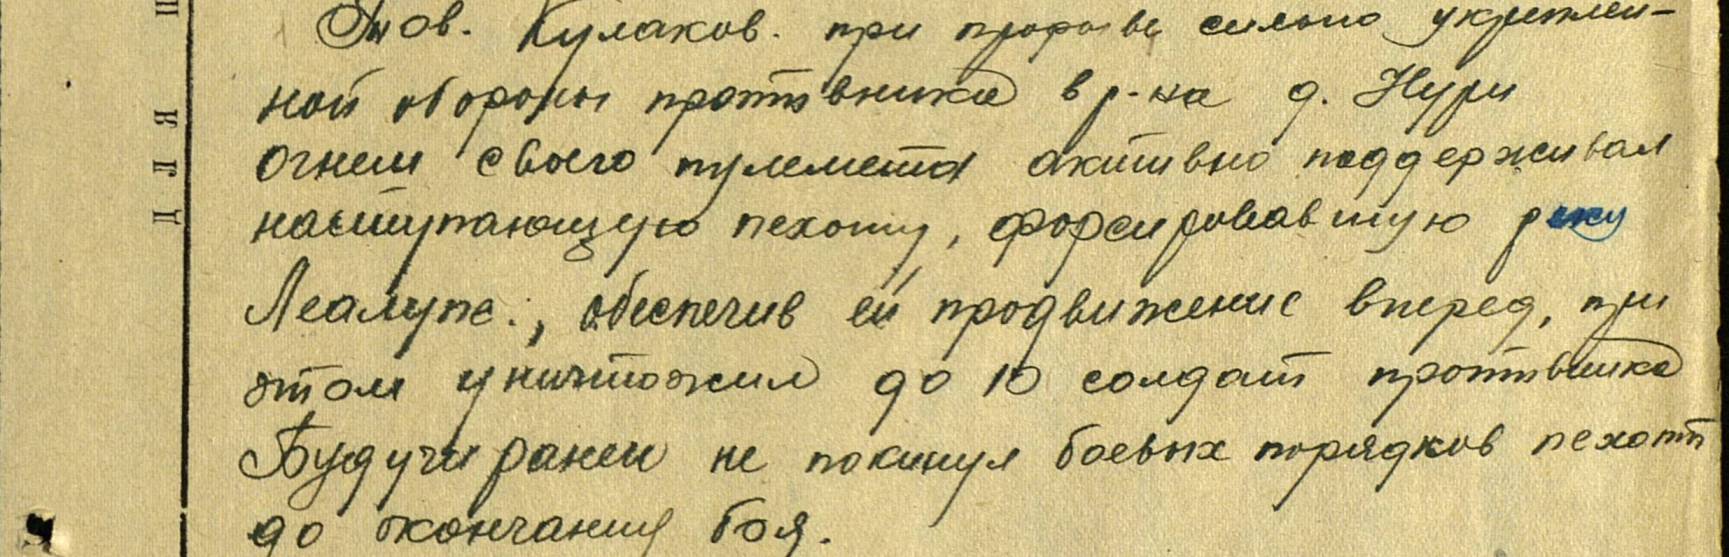 Тов. Кулаков. при прорыве сильно укреплен-
ной обороны противника в р-на д. Нури
огнем своего пулемета активно поддерживал
наступающую пехоту, форсировавшую реку
Леалупе., обеспечив ей продвижение вперед, при
этом уничтожил до 10 солдат противника
Будучи ранен не покинул боевых порядков пехоты
до окончания боя.